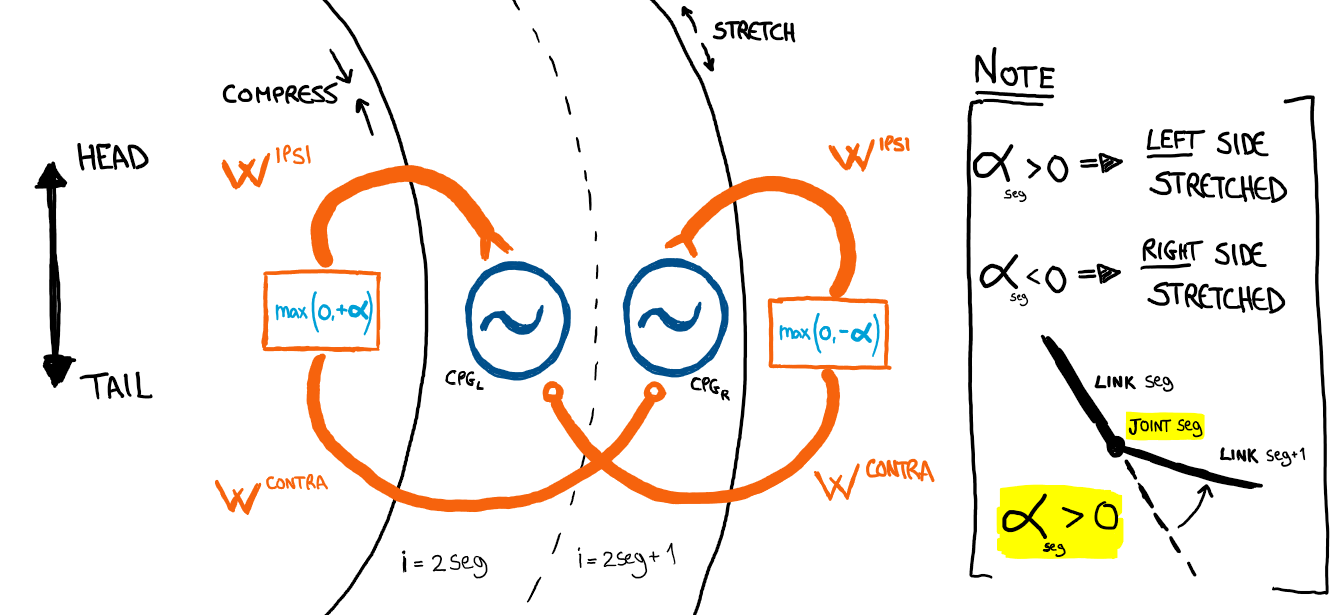 STRETCH
COMPRESS
HEAD
TAIL
W^IPSI
W^IPSI
max(0,+α)
max(0,-α)
CPG_L
CPG_R
W^CONTRA
W^CONTRA
i=2seg
i=2seg+1
NOTE
α_seg >0 => LEFT SIDE
STRETCHED
α_seg <0 => RIGHT SIDE
STRETCHED
LINK seg
JOINT seg
LINK seg+1
α_seg >0